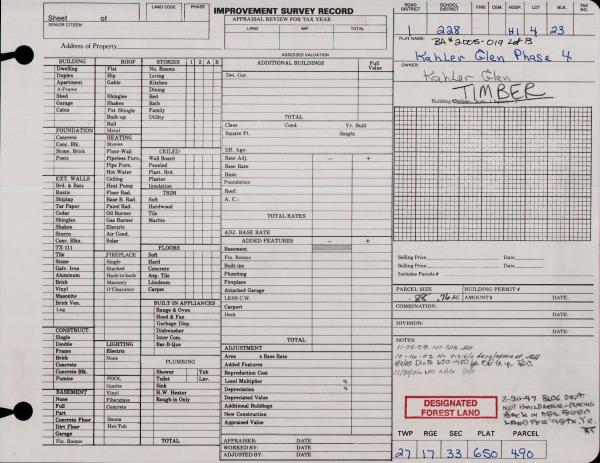 IMPROVEMENT SURVEY RECORD
Sheet of
SENIOR CITIZEN
LAND CODE
PHASE
APPRAISAL REVIEW FOR TAX YEAR
LAND IMP. TOTAL
Address of Property
ASSESSED VALUATION
ROAD DISTRICT
SCHOOL DISTRICT
FIRE
CEM.
HOSP.
LOT
BLK
TAX NO.
1 228 H1 4 23
PLAT NAME: BA # 2005-019 Lot B
Kahler Glen Phase 4
OWNER:
Kahler Glen
TIMBER
BUILDING ROOF STORIES 1 2 A B
Dwelling Flat No. Rooms
Duplex Hip Living
Apartment Gable Kitchen
A-Frame Dining
Shed Shingles Bed
Garage Shakes Bath
Cabin Pat Shingle Family
Built-up Utility
Roll
FOUNDATION Metal
Concrete HEATING CEILED
Conc. Blk. Stoves
Stone, Brick Floor-Wall Wall Board
Posts Pipeless Furn. Paneled
Pipe Furn. Plast. Brd.
Hot Water Plaster
EXT. WALLS Ceiling Insulation
Brd. & Bats Heat Pump TRIM
Rustic Floor Rad. Soft
Shiplap Base B. Rad. Hardwood
Tar Paper Panel Rad. Tile
Cedar Oil Burner Marble
Shingles Gas Burner
Shakes Electric
Stucco Air Cond.
Conc. Blkn. Solar
TX-111 FLOORS
Tile FIREPLACE Soft
Stone Single Hard
Galv. Iron Stacked Concrete
Aluminum Back-to-back Asp. Tile
Brick Masonry Linoleum
Vinyl O'Clearance Carpet
Masonite
Brick Ven. BUILT-IN APPLIANCES
Log Range & Oven
Hood & Fan
Garbage Disp.
CONSTRUCT. Dishwasher
Single Inter Com.
Double LIGHTING Bar-B-Que
Frame Electric
Brick None PLUMBING
Concrete Shower Tub
Concrete Blk Toilet Lav.
Pumice POOL Sink
BASEMENT Vinyl H.W. Heater
None Fiberglass Rough-in Only
Full Concrete
Part.
Concrete Floor Sauna
Dirt Floor Hot-Tub
Garage
Fin. Rooms TOTAL
ADDITIONAL BUILDINGS Full Value
Det. Gar.
TOTAL
Class Cond. Yr. Built
Square Ft. Height
Eff. Age:
Rate Adj. − +
Base Rate
Heat:
Foundation
Roof:
A. C.:
TOTAL RATES
ADJ. BASE RATE
ADDED FEATURES − +
Basement
Fin. Rooms
Built-ins
Plumbing
Fireplace
Attached Garage
LESS C.W.
Carport
Deck
TOTAL
ADJUSTMENT
Area x Base Rate
Added Features
Reproduction Cost
Local Multiplier %
Depreciation %
Depreciated Value
Additional Buildings
New Construction
Appraised Value
APPRAISER: DATE
WORKED BY: DATE
ADJUSTED BY: DATE
Selling Price Date
Selling Price Date
Includes Parcels #
PARCEL SIZE BUILDING PERMIT #
.88 .76 AC AMOUNT $ DATE:
COMBINATION: DATE:
DIVISION: DATE:
NOTES:
11-05-98 NO CHG. JEH
10-16-02 No visible development JEH
11/30/06 NO CHG
2-20-97 BLDG DEPT.
NOT BUILDABLE - PLACING
BACK IN DES. FOREST
LAND FOR '98 TX. YR.
DESIGNATED
FOREST LAND
TWP RGE SEC PLAT PARCEL
27 17 33 650 490